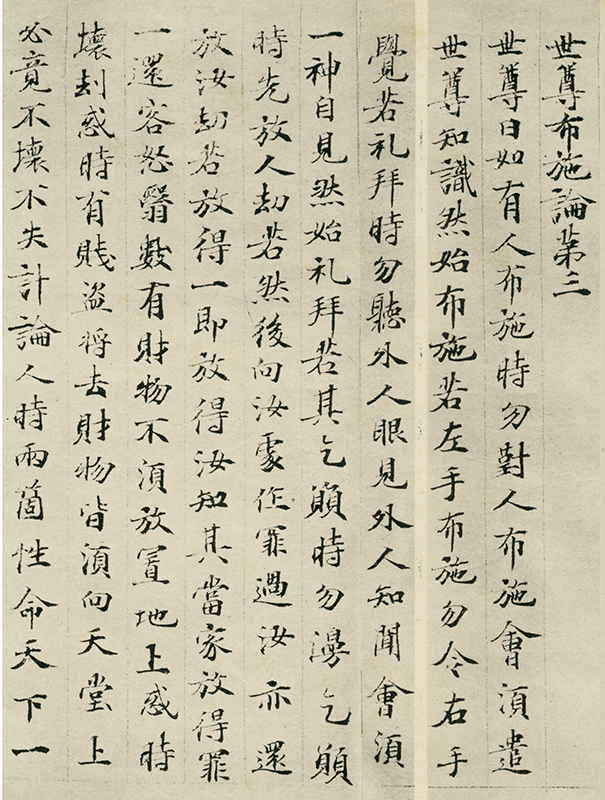 世尊布施論第三
世尊曰如有人布施時勿對人布施會湏遣
世尊知識然始布施若左手布施勿令右手
覺若礼拜時勿聽外人眼見外人知聞會湏
一神自見然始礼拜若其乞願時勿漫乞願
時先放人劫若然後向汝處作罪過汝亦還
放汝劫若放得一即放得汝知其當家放得罪
一還客怒翳數有財物不湏放置地上惑時
壞刦惑時有賤盜將去財物皆湏向天堂上
必竟不壞不失計論人時兩箇性命天下一